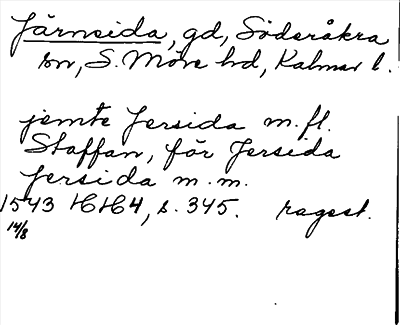 Järnsida, gd, Söderåkra
sn, S. Möre hd, Kalmar l.
jemte Jersida m. fl.
Staffan, för Jersida
Jersida m. m.
1543 HH4, s. 345. ragest.
14/8